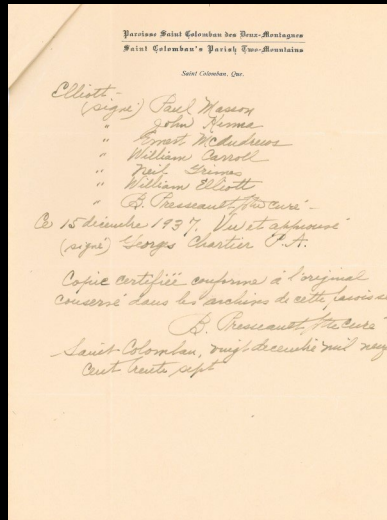 Paroisse Saint Colomban des Deux-Montagnes
Saint Colomban's Parish Two-Mountains
Saint Colomban, Que.
Elliott -
(signé) Paul Masson
" John Kinna
" Ernest McAndrews
" William Carroll
" Neil Grimes
" William Elliott
" B. Presseault, ptre curé -
Ce 15 décembre 1937. Vu et approuvé
(signé) Georges Chartier P.A.
Copie certifiée conforme à l'original
conservé dans les archives de cette paroisse
B. Presseault, ptre curé
Saint Colomban, vingt decembre mil neuf
cent trente sept